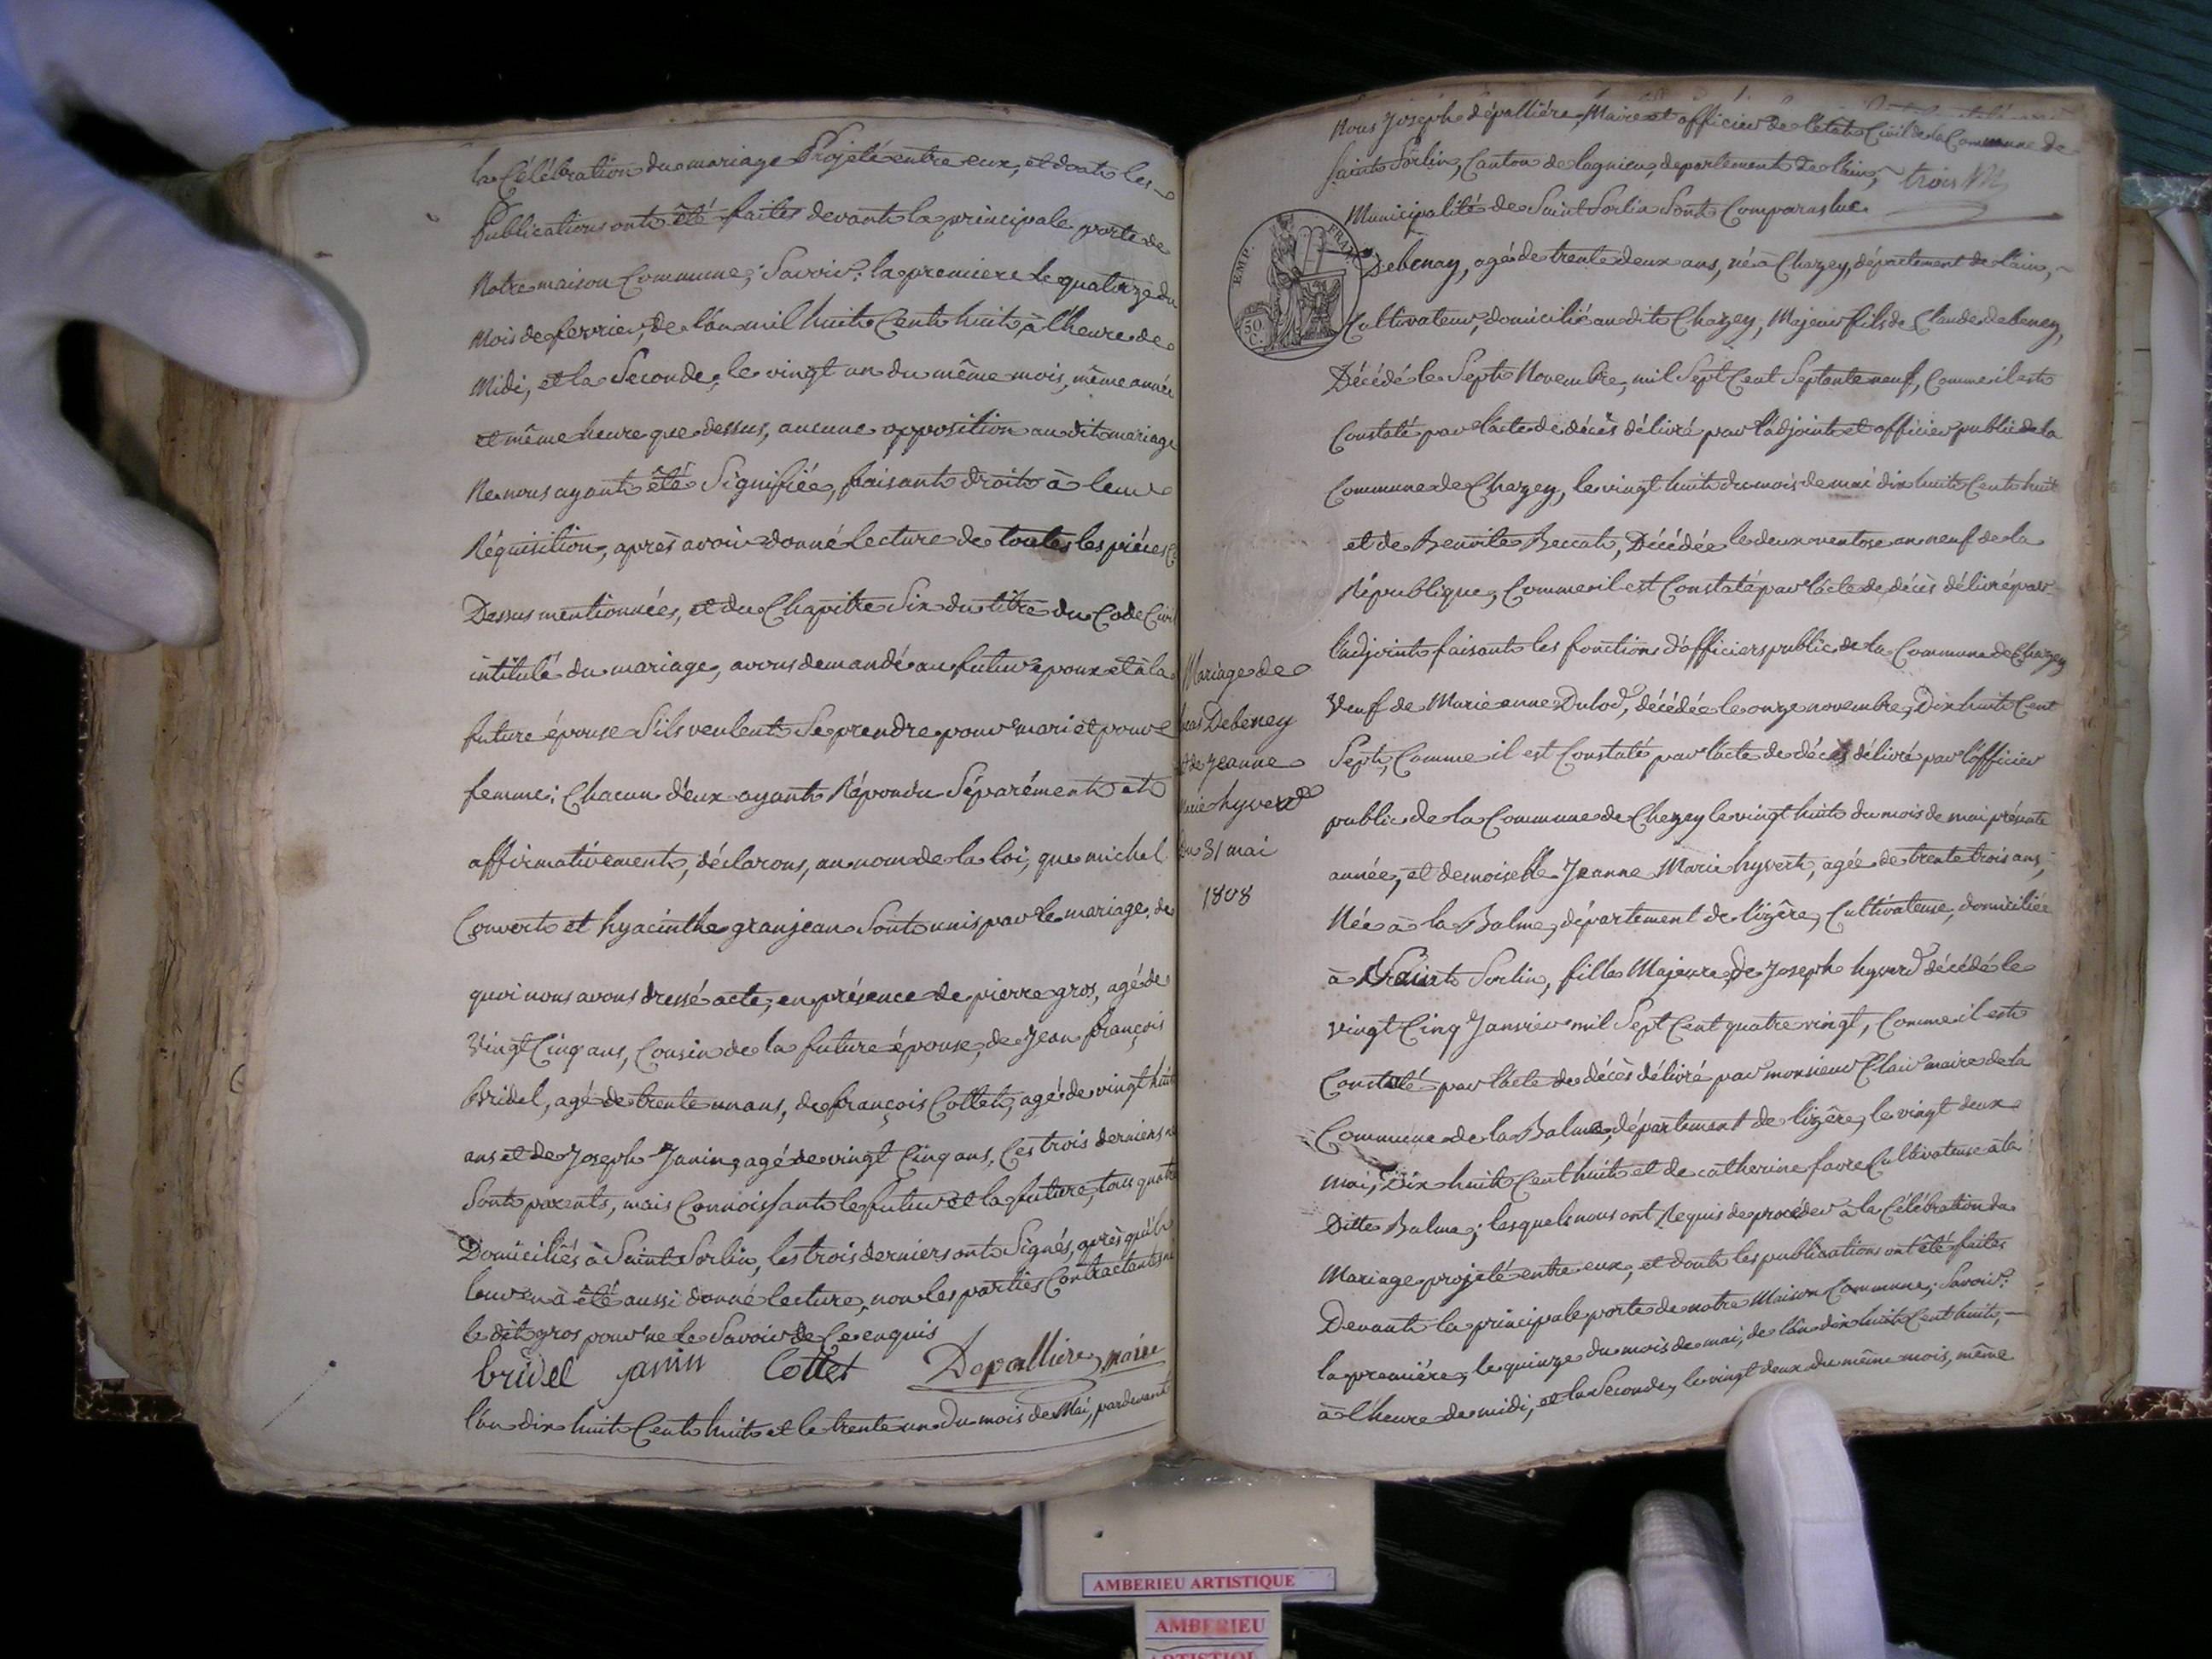 la Célébration du mariage Projeté entre eux, et dont les
Publications ont été faites devant la principale porte de
Notre maison Commune; Savoir: la premiere le quatorze du
Mois de fevrier, de l'an mil huit Cent huit, à l'heure de
Midi, et la Seconde, le vingt un du même mois, même année
et même heure que dessus, aucune opposition au dit mariage
Ne nous ayant été Signifiée, faisant droit à leur
Réquisition, après avoir donné lecture de toutes les pièces Cy
Dessus mentionnées, et du Chapitre Six du titre du Code Civil
intitulé du mariage, avons demandé au futur epoux et à la
future épouse S'ils veulent Se prendre pour mari et pour
femme: Chacun d'eux ayant Répondu Séparément et
affirmativement, déclarons, au nom de la loi, que michel
Convert et hyacinthe granjean Sont unis par le mariage, de
quoi nous avons dressé acte, en présence de pierre gros, agé de
Vingt Cinq ans, Cousin de la future épouse, de Jean françois
Bridel, agé de trente un ans, de françois Collet, agé de vingt huit
ans et de Joseph Janin, agé de vingt Cinq ans, Ces trois derniers ne
Sont parents, mais Connoissant le futur et la future, tous quatre
Domiciliés à Saint Sorlin, les trois derniers ont Signés, après qu'il
leur en à été aussi donné lecture, non les parties Contractantes ni
le dit gros pour ne le Savoir de Ce enquis
bridel janin Collet Depalliere, maire
l'an dix huit Cent huit et le trente un Du mois de Mai, pardevant
Nous Joseph dépallière, Maire et officier de l'état Civil de la Commune de
Saint Sorlin, Canton de lagnieu, departement De l'ain,
Municipalité de Saint Sorlin Sont Comparus luc
EMP. FRAN.
50 C.
Debenay, agé de trente deux ans, né à Chazey, département de l'ain,
Cultivateur, domicilié au dit Chazey, Majeur fils de Claude debeney,
Décédé le Sept Novembre, mil Sept Cent Septante neuf, Comme il est
Constaté par l'acte de décès délivré par l'adjoint et officier public de la
Commune de Chazey, le vingt huit du mois de mai dix huit Cent huit
et de Benoite Beccat, Décédée le deux ventose an neuf de la
République, Comme il est Constaté par l'acte de décès délivré par
l'adjoint faisant les fonctions d'officier public de la Commune de Chazey
Veuf de Marie anne Dulod, décédée le onze novembre, Dix huit Cent
Sept, Comme il est Constaté par l'acte de décès délivré par l'officier
public de la Commune de Chazey le vingt huit du mois de mai présente
année, et demoiselle Jeanne Marie hyvert, agée de trente trois ans,
Née à la Balme, département de l'izêre, Cultivateuse, domiciliée
à Saint Sorlin, fille Majeure De Joseph hyverd décédé le
vingt Cinq Janvier mil Sept Cent quatre vingt, Comme il est
Constaté par l'acte de décès délivré par monsieur Clair maire de la
Commune de la Balme, département de l'izêre, le vingt deux
mai, Dix huit Cent huit et de catherine favre Cultivateuse à la
Ditte Balme; lesquels nous ont Requis de procéder à la Célébration du
Mariage projeté entre eux, et dont les publications ont été faites
Devant la principale porte de notre Maison Commune; Savoir:
la premiére, le quinze du mois de mai, de l'an dix huit Cent huit,
à l'heure de midi, et la Seconde, le vingt deux du même mois, même
Mariage de
luc Debeney
et de Jeanne
Marie hyverd
Du 31 mai
1808
AMBERIEU ARTISTIQUE
AMBERIEU
ARTISTIQUE